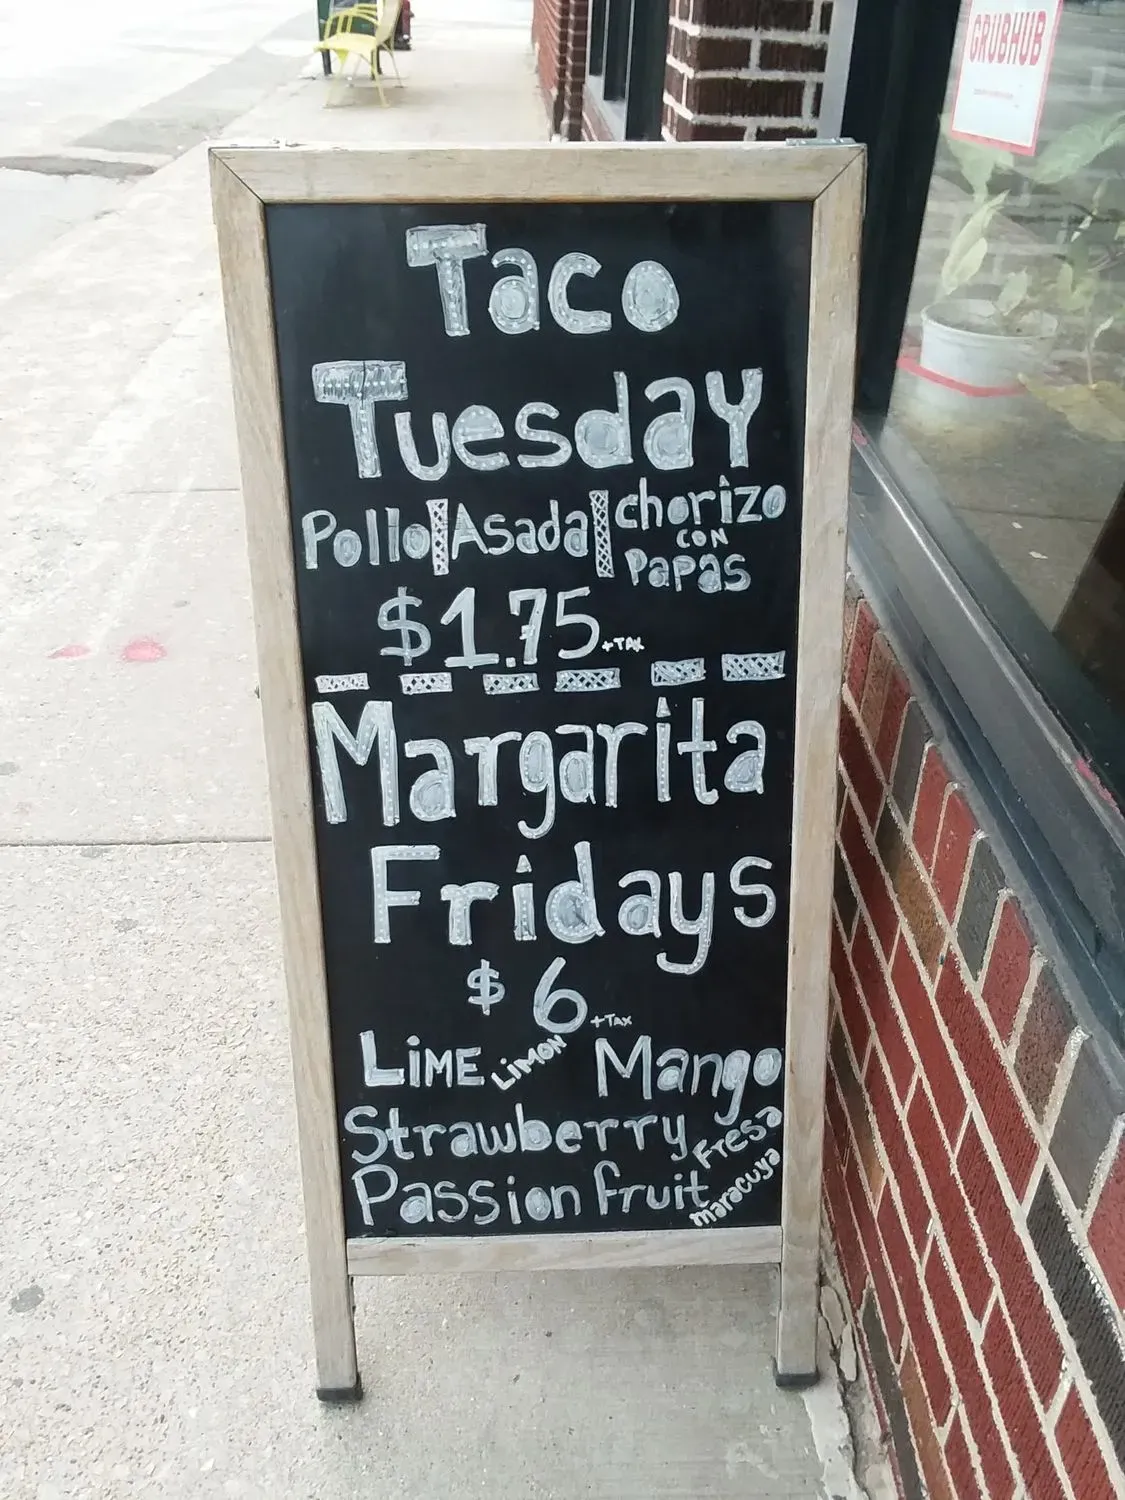 GRUBHUB
Taco
Tuesday
Pollo Asada chorizo
con
Papas
$1.75 +TAX
Margarita
Fridays
$6 +TAX
LiME LiMON Mango
Strawberry Fresa
Passion fruit maracuya